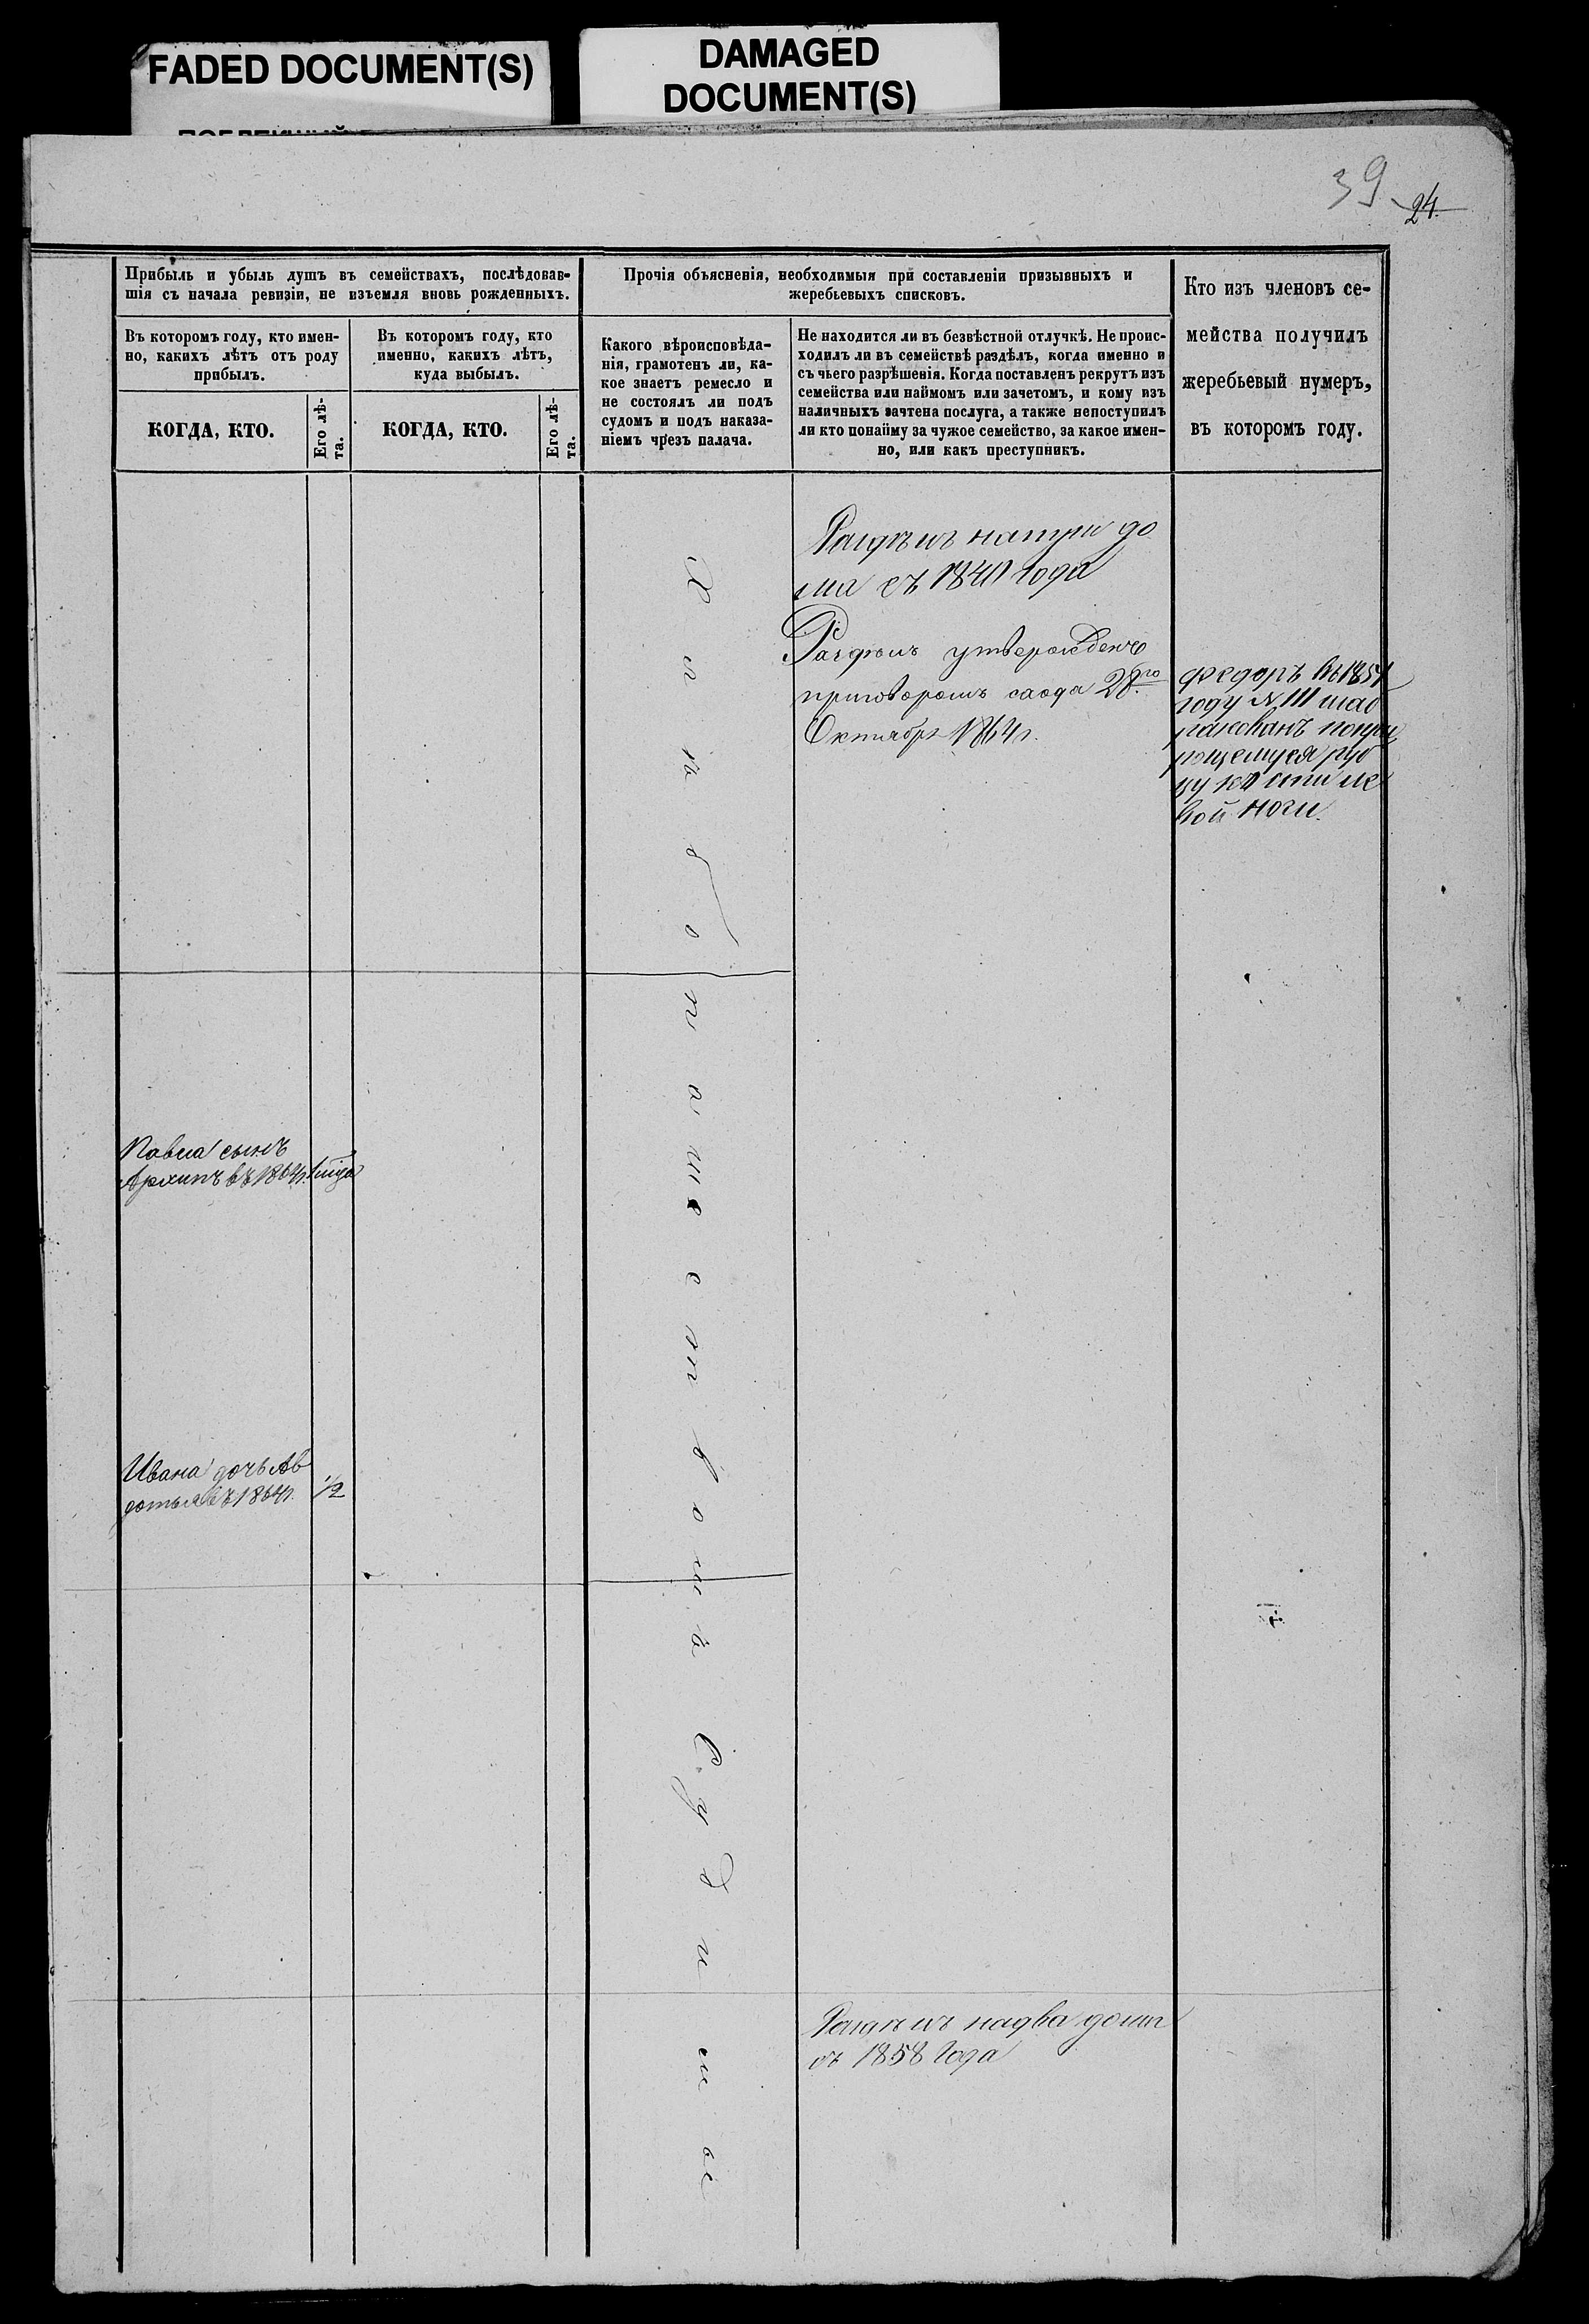 FADED DOCUMENT(S)
DAMAGED
DOCUMENT(S)
39
24.
Прибыль и убыль душъ въ семействахъ, послѣдовав-
шія съ начала ревизіи, не изъемля вновь рожденныхъ.
Въ которомъ году, кто имен-
но, какихъ лѣтъ отъ роду
прибылъ.
КОГДА, КТО.
Его лѣ-
та.
Въ которомъ году, кто
именно, какихъ лѣтъ,
куда выбылъ.
КОГДА, КТО.
Его лѣ-
та.
Прочія объясненія, необходимыя при составленіи призывныхъ и
жеребьевыхъ списковъ.
Какого вѣроисповѣда-
нія, грамотенъ ли, ка-
кое знаетъ ремесло и
не состоялъ ли подъ
судомъ и подъ наказа-
ніемъ чрезъ палача.
Не находится ли въ безвѣстной отлучкѣ. Не проис-
ходилъ ли въ семействѣ раздѣлъ, когда именно и
съ чьего разрѣшенія. Когда поставленъ рекрутъ изъ
семейства или наймомъ или зачетомъ, и кому изъ
наличныхъ зачтена послуга, а также непоступилъ
ли кто понайму за чужое семейство, за какое имен-
но, или какъ преступникъ.
Кто изъ членовъ се-
мейства получилъ
жеребьевый нумеръ,
въ которомъ году.
Павла сынъ
Архипъ въ 1864г.
Ивана дочь Ав
дотья въ 1864г.
1/2
Раздѣлъ натри до
ма съ 1840 года
Раздѣлъ утвержденъ
приговоромъ схода 28го
Октября 1864г.
Раздѣлъ надва дома
съ 1858 года
Федоръ въ 1854
году N 111
вой ноги.